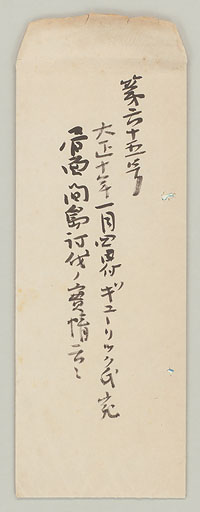 第六十五号
大正十年一月四日付ギューリック氏宛
間島討伐ノ實情云々